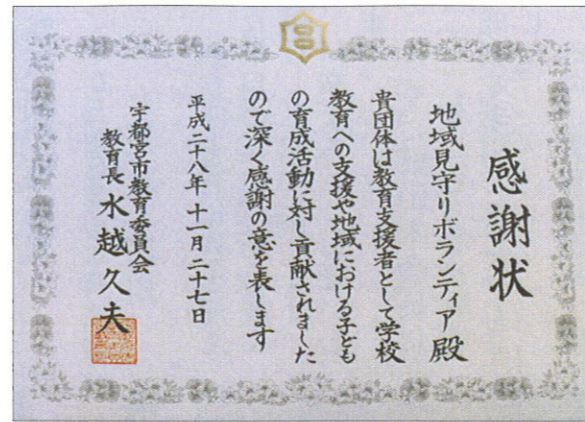 感謝状
地域見守りボランティア殿
貴団体は教育支援者として学校
教育への支援や地域における子ども
の育成活動に対し貢献されました
ので深く感謝の意を表します
平成二十八年十一月二十七日
宇都宮市教育委員会
教育長 水越久夫